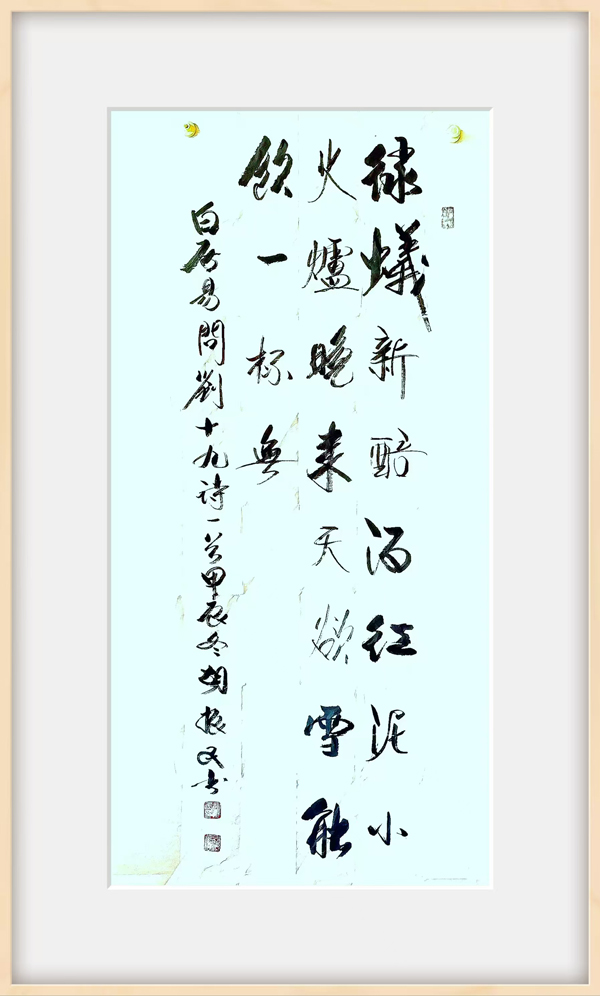 緑蟻新醅酒紅泥小
火爐晚来天欲雪能
飲一杯無
白居易問劉十九詩一首甲辰冬胡振文书